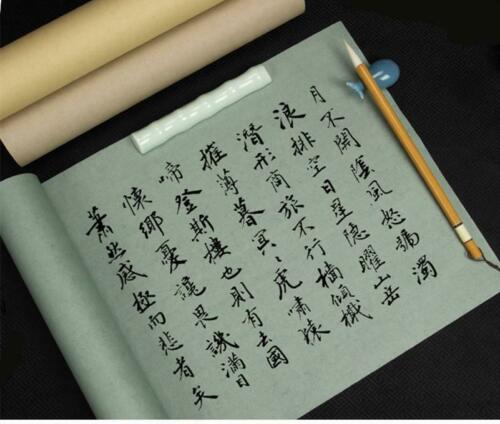 月不開陰風怒號濁
浪排空日星隱曜山岳
潛形商旅不行檣傾楫
摧薄暮冥〻虎嘯猿
啼登斯樓也則有去國
懷鄉憂讒畏譏滿目
蕭然感極而悲者矣